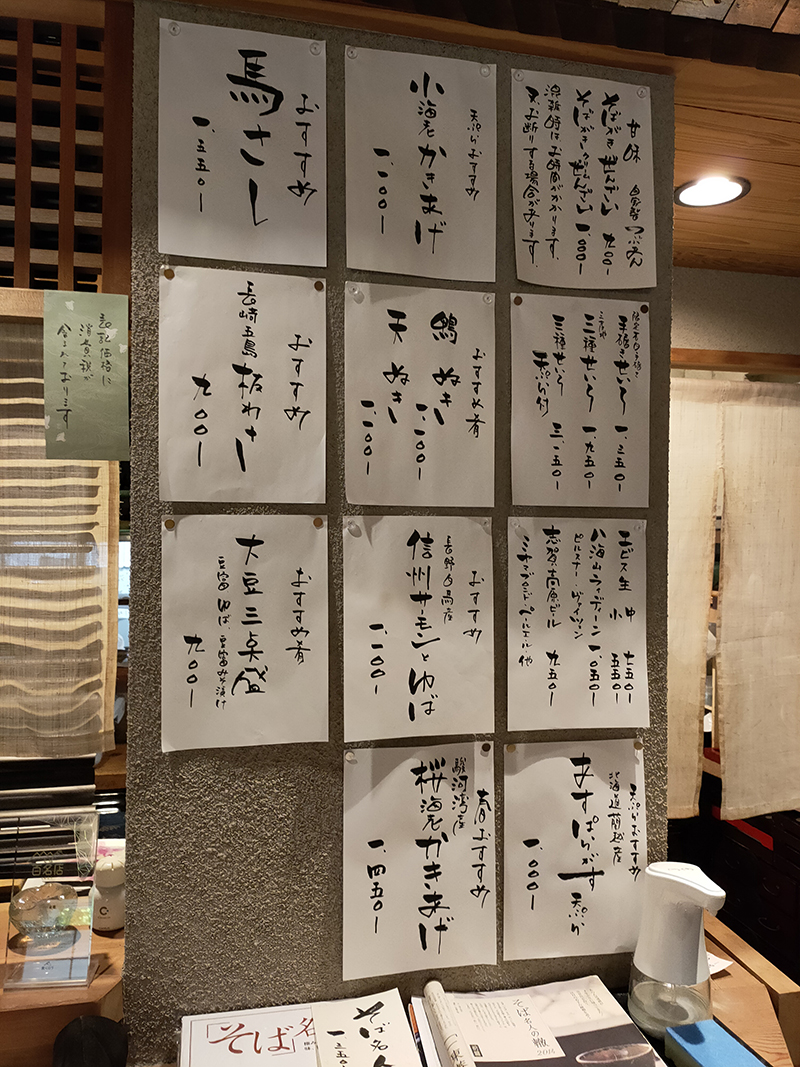 甘味 自家製つぶあん
そばがきぜんざい 九〇〇-
そばがきクリームぜんざい 一、〇〇〇-
混雑時はお時間がかかります。
又お断りする場合があります。
天ぷらおすすめ
小海老かきあげ
一、一〇〇-
おすすめ
馬さし
一、五五〇-
手碾きせいろ 一、三五〇-
三種せいろ 一、九五〇-
三種せいろ 天ぷら付 三、一五〇-
おすすめ肴
鴨ぬき 一、一〇〇-
天ぬき 一、一〇〇-
おすすめ
長崎五島 板わさ
九〇〇-
表記価格に
消費税が
含まれております
ヱビス生 中 七五〇-
小 五五〇-
八海山ライディーン 一、〇五〇-
ピルスナー・ヴァイツェン
志賀高原ビール 九五〇-
おすすめ
長野白馬産
信州サーモンとゆば
一、一〇〇-
おすすめ肴
大豆三点盛
豆富 ゆば 豆富みそ漬け
九〇〇-
天ぷらおすすめ
北海道蘭越産
あすぱらがす天ぷら
一、〇〇〇-
春おすすめ
駿河湾産
桜海老かきあげ
一、四五〇-
百名店
「そば」名
そば名人
一、三五〇-
そば名人の轍
2015